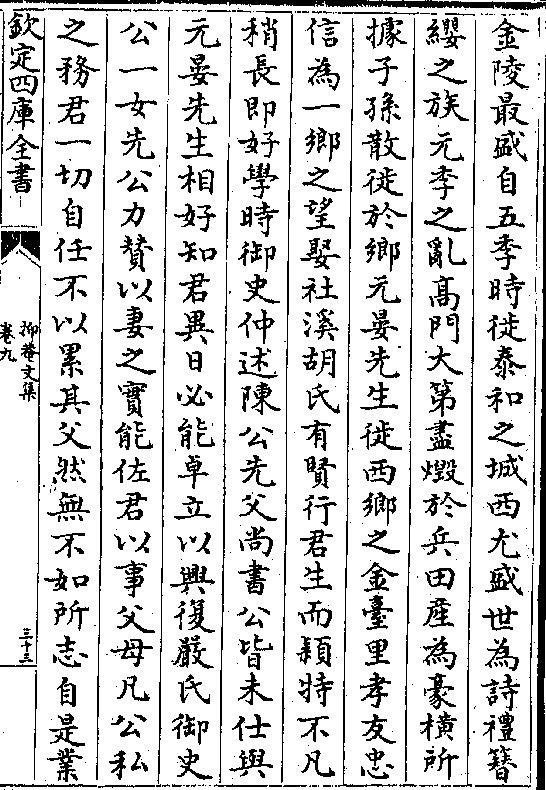 金陵最盛自五季時徙泰和之城西尤盛世為詩禮簪
纓之族元季之亂高門大第盡燬於兵田產為豪橫所
據子孫散徙於鄉元晏先生徙西鄉之金臺里孝友忠
信為一鄉之望娶社溪胡氏有賢行君生而穎特不凡
稍長即好學時御史仲述陳公先父尚書公皆未仕與
元晏先生相好知君異日必能卓立以興復嚴氏御史
公一女先公力贊以妻之實能佐君以事父母凡公私
之務君一切自任不以累其父然無不如所志自是業
欽定四庫全書
抑菴文集
卷九
三十三